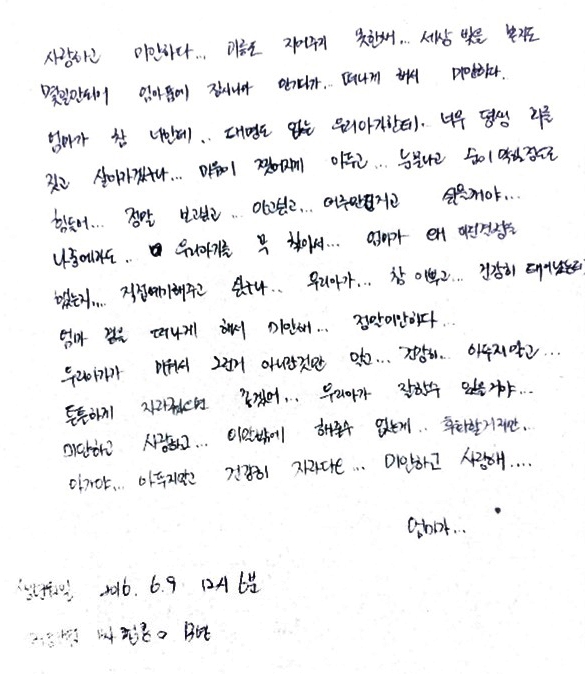 사랑하고 미안하다... 이름도 지어주지 못한채... 세상 빛을 본지도
몇일만되어 엄마품에 잠시나마 안기다가.. 떠나게 해서 미안하다.
엄마가 참 .. 대면도 없는 우리아기한테. 너무 평생 죄를
짓고 살아가겠구나... 마음이 찢어지게 아프고... 눈물나고 숨이 막힐정도로
힘들어... 정말 보고싶고... 안고싶고... 어루만지고 싶을거야...
나중에라도.. 우리아기를 꼭 찾아서... 엄마가 왜 이런결정을
했는지... 직접얘기해주고 싶구나.. 우리아가... 참 이쁘고... 건강히 태어났는데
엄마 곁을 떠나게 해서 미안해... 정말미안하다...
우리아가가 미워서 그런거 아니란것만 알고... 건강히.. 아프지말고...
튼튼하게 자라줬으면 좋겠어... 우리아가 잘할수 있을거야...
미안하고 사랑하고... 이말밖에 해줄수 없는게.. 후회할거지만...
아가야... 아프지말고 건강히 자라다오... 미안하고 사랑해....
엄마가...
2016. 6. 9 12시 6분
B형